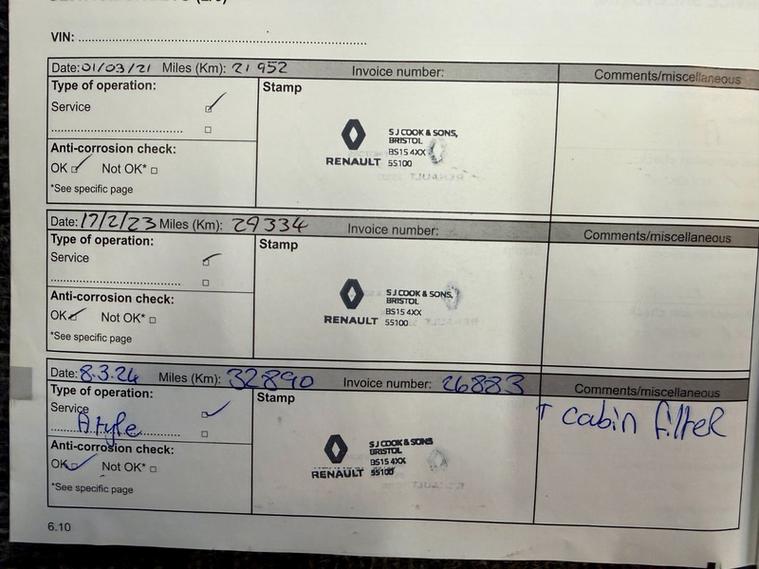 VIN:
Date: 01/03/21 Miles (Km): 21 952 Invoice number: Comments/miscellaneous
Type of operation: Stamp
Service
S J COOK & SONS,
BRISTOL
BS15 4XX
RENAULT 55100
Anti-corrosion check:
OK Not OK*
*See specific page
Date: 17/2/23 Miles (Km): 29334 Invoice number: Comments/miscellaneous
Type of operation: Stamp
Service
S J COOK & SONS,
BRISTOL
BS15 4XX
RENAULT 55100
Anti-corrosion check:
OK Not OK*
*See specific page
Date: 8.3.24 Miles (Km): 32890 Invoice number: 26883 Comments/miscellaneous
Type of operation: Stamp
Service
+ cabin filter
S J COOK & SONS
BRISTOL
BS15 4XX
RENAULT 55100
Anti-corrosion check:
OK Not OK*
*See specific page
6.10